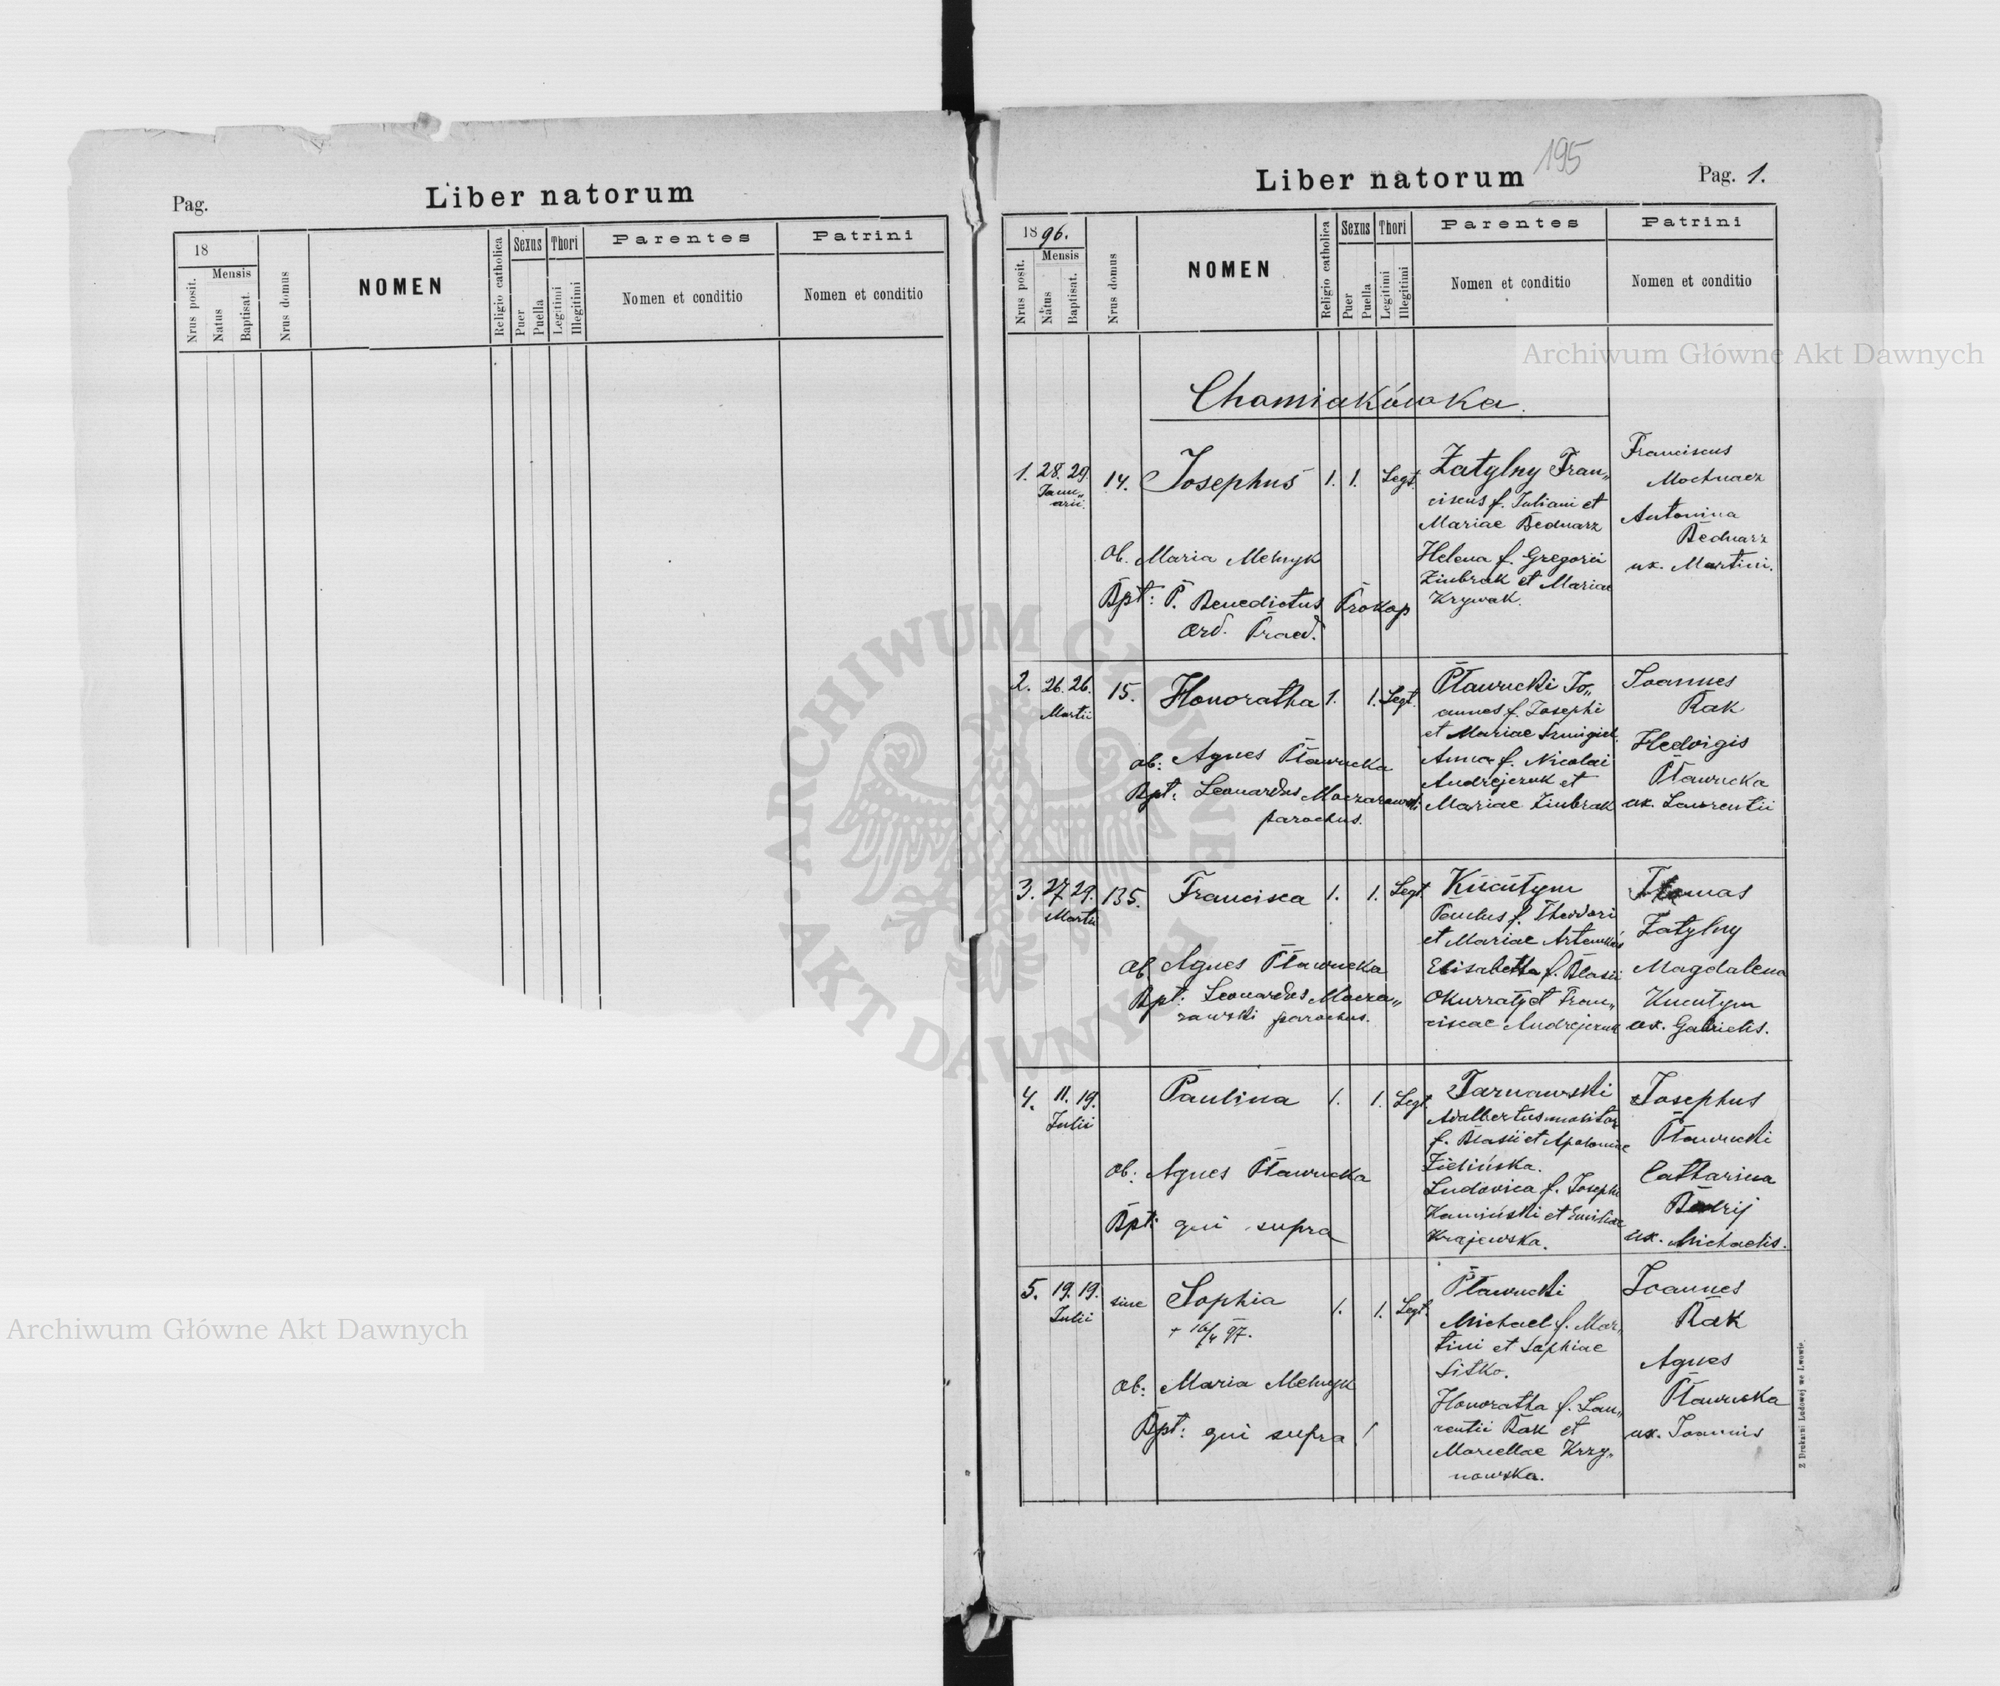 Pag.
Liber natorum
18
Mensis
Nrus posit.
Natus
Baptisat.
Nrus domus
NOMEN
Religio catholica
Sexus
Puer
Puella
Thori
Legitimi
Illegitimi
Parentes
Nomen et conditio
Patrini
Nomen et conditio
195
Liber natorum
Pag. 1.
1896.
Mensis
Nrus posit.
Natus
Baptisat.
Nrus domus
NOMEN
Religio catholica
Sexus
Puer
Puella
Thori
Legitimi
Illegitimi
Parentes
Nomen et conditio
Patrini
Nomen et conditio
Chomiakówka.
1. 28. 29.
Janu„
arii.
14.
Josephus
1. 1. Legt.
Zatylny Fran„
ciscus f. Juliani et
Mariae Bednarz
Helena f. Gregorii
Ziubrak et Mariae
Krywak.
Franciscus
Mochnacz
Antonina
Bednarz
ux. Martini.
Ob. Maria Melnyk
Bpt: P. Benedictus Prokop
Ord. Praed.
2. 26. 26.
Martii
15.
Honoratha
1. 1. Legt.
Pławucki Jo„
annes f. Josephi
et Mariae
Anna f. Nicolai
Andrejczuk et
Mariae Ziubrak
Joannes
Rak
Hedvigis
Pławucka
ux. Laurentii
Ob: Agnes Pławucka
Bpt: Leonardus Moczarowski
parochus.
3. 27. 29.
Martii
135.
Francisca
1. 1. Legt.
Kucułym
Paulus f. Theodori
et Mariae
Elisabetha f. Blasii
et Fran„
ciscae Andrejczuk
Thomas
Zatylny
Magdalena
Kucułym
ux. Gabrielis.
Ob Agnes Pławucka
Bpt: Leonardus Mocza„
rowski parochus.
4. 11. 19.
Julii
Paulina
1. 1. Legt.
Tarnawski
Adalbertus molitor
f. Blasii et Apoloniae
Zielińska.
Ludovica f. Josephi
Kamiński et Emiliae
Krajewska.
Josephus
Pławucki
Catharina
ux. Michaelis.
Ob: Agnes Pławucka
Bpt: qui supra
5. 19. 19.
Julii
sine
Sophia
+ 16/4 97.
1. 1. Legt.
Pławucki
Michael f. Mar„
tini et Sophiae
Sitko.
Honoratha f. Lau„
rentii Rak et
Marcellae Krzy„
nowska.
Joannes
Rak
Agnes
Pławucka
ux. Joannis
Ob: Maria Melnyk
Bpt: qui supra
Z Drukarni Ludowej we Lwowie.
Archiwum Główne Akt Dawnych
Archiwum Główne Akt Dawnych
ARCHIWUM GŁÓWNE
AKT DAWNYCH